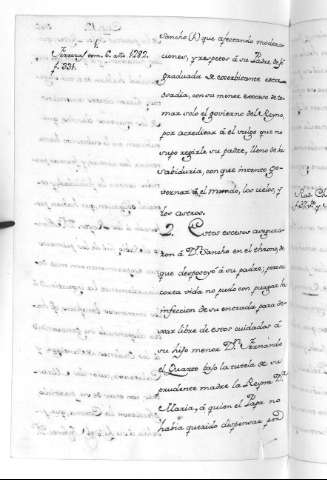 Ferreras tom. 6. año 1282.
f. 331.
Sancho (h) que afectando modera-
cion, y respeto à su Padre de
graduada de exorbitante
osadia, con su menor exceso de to-
mar solo el govierno del Reyno,
por acreditar à el vulgo que no
supo regirle su padre, lleno de
sabiduria, con que intentó go-
vernar à el mundo, los cielos, y
los astros.
2. Estos excesos asegura-
ron à Dn. Sancho en el throno, de
que desposeyó à su padre; pero su
corta vida no pudo con purgar la
infeccion de su entrada para de-
xar libre de estos cuidados à
su hijo menor Dn. Fernando
el Quarto bajo la tutela de su
prudente madre la Reyna Dª
Maria, à quien el Papa no
havia querido dispensar en